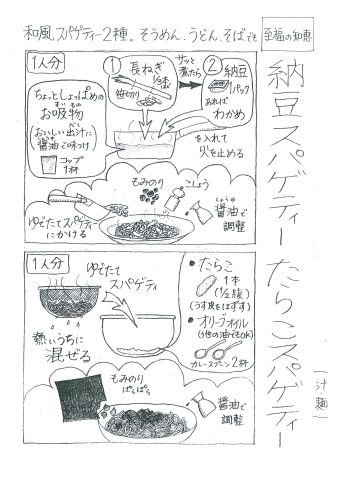 和風スパゲティー2種。そうめん、うどん、そばでも
至福の知恵
納豆スパゲティー
たらこスパゲティー
一汁麺
1人分
ちょっとしょっぱめの
お吸物
おいしい出汁に
醤油で味つけ
コップ
1杯
①
長ねぎ
1/3本
笹切り
サッと
煮たら
②
納豆
1パック
あれば
わかめ
を入れて
火を止める
ゆでたてスパゲティー
にかける
もみのり
こしょう
しょうゆ
醤油で
調整
1人分
ゆでたて
スパゲティ
熱いうちに
混ぜる
・たらこ
1本
(1/2腹)
(うす皮をはずす)
・オリーブオイル
(他の油でもOK)
カレースプーン2杯
もみのり
ぱらぱら
醤油で
調整